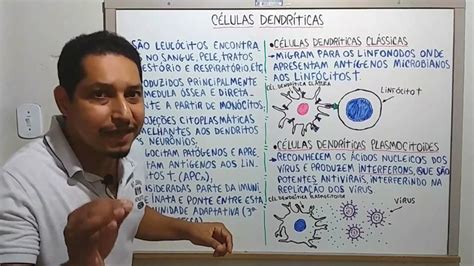 CÉLULAS DENDRÍTICAS
SÃO LEUCÓCITOS ENCONTRA
NO SANGUE, PELE, TRATOS
ESTÓRIO E RESPIRATÓRIO, ETC.
ODUZIDOS PRINCIPALMENTE
MEDULA ÓSSEA E DIRETA
NTE A PARTIR DE MONÓCITOS.
OJEÇÕES CITOPLASMÁTICAS
MELHANTES AOS DENDRITOS
NEURÔNIOS.
GOCITAM PATÓGENOS E APRE
TAM ANTÍGENOS AOS LIN
TOS T. (APCs).
NSIDERADAS PARTE DA IMUNI
INATA E PONTE ENTRE ESTA
UNIDADE ADAPTATIVA (3ª
• CÉLULAS DENDRÍTICAS CLÁSSICAS
→ MIGRAM PARA OS LINFONODOS ONDE
APRESENTAM ANTÍGENOS MICROBIANOS
AOS LINFÓCITOS T.
CÉL. DENDRÍTICA CLÁSSICA
LINFÓCITO T
• CÉLULAS DENDRÍTICAS PLASMOCITOIDES
→ RECONHECEM OS ÁCIDOS NUCLEICOS DOS
VÍRUS E PRODUZEM INTERFERONS, QUE SÃO
POTENTES ANTIVIRAIS, INTERFERINDO NA
REPLICAÇÃO DOS VÍRUS.
CÉL. DENDRÍTICA PLASMOCITOIDE
VÍRUS